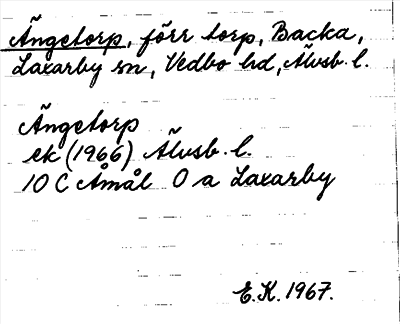 Ängetorp, förr torp, Backa,
Laxarby sn, Vedbo hd, Älvsb. l.
Ängetorp
ek (1966) Älvsb. l.
10 C Åmål 0 a Laxarby
E.K. 1967.